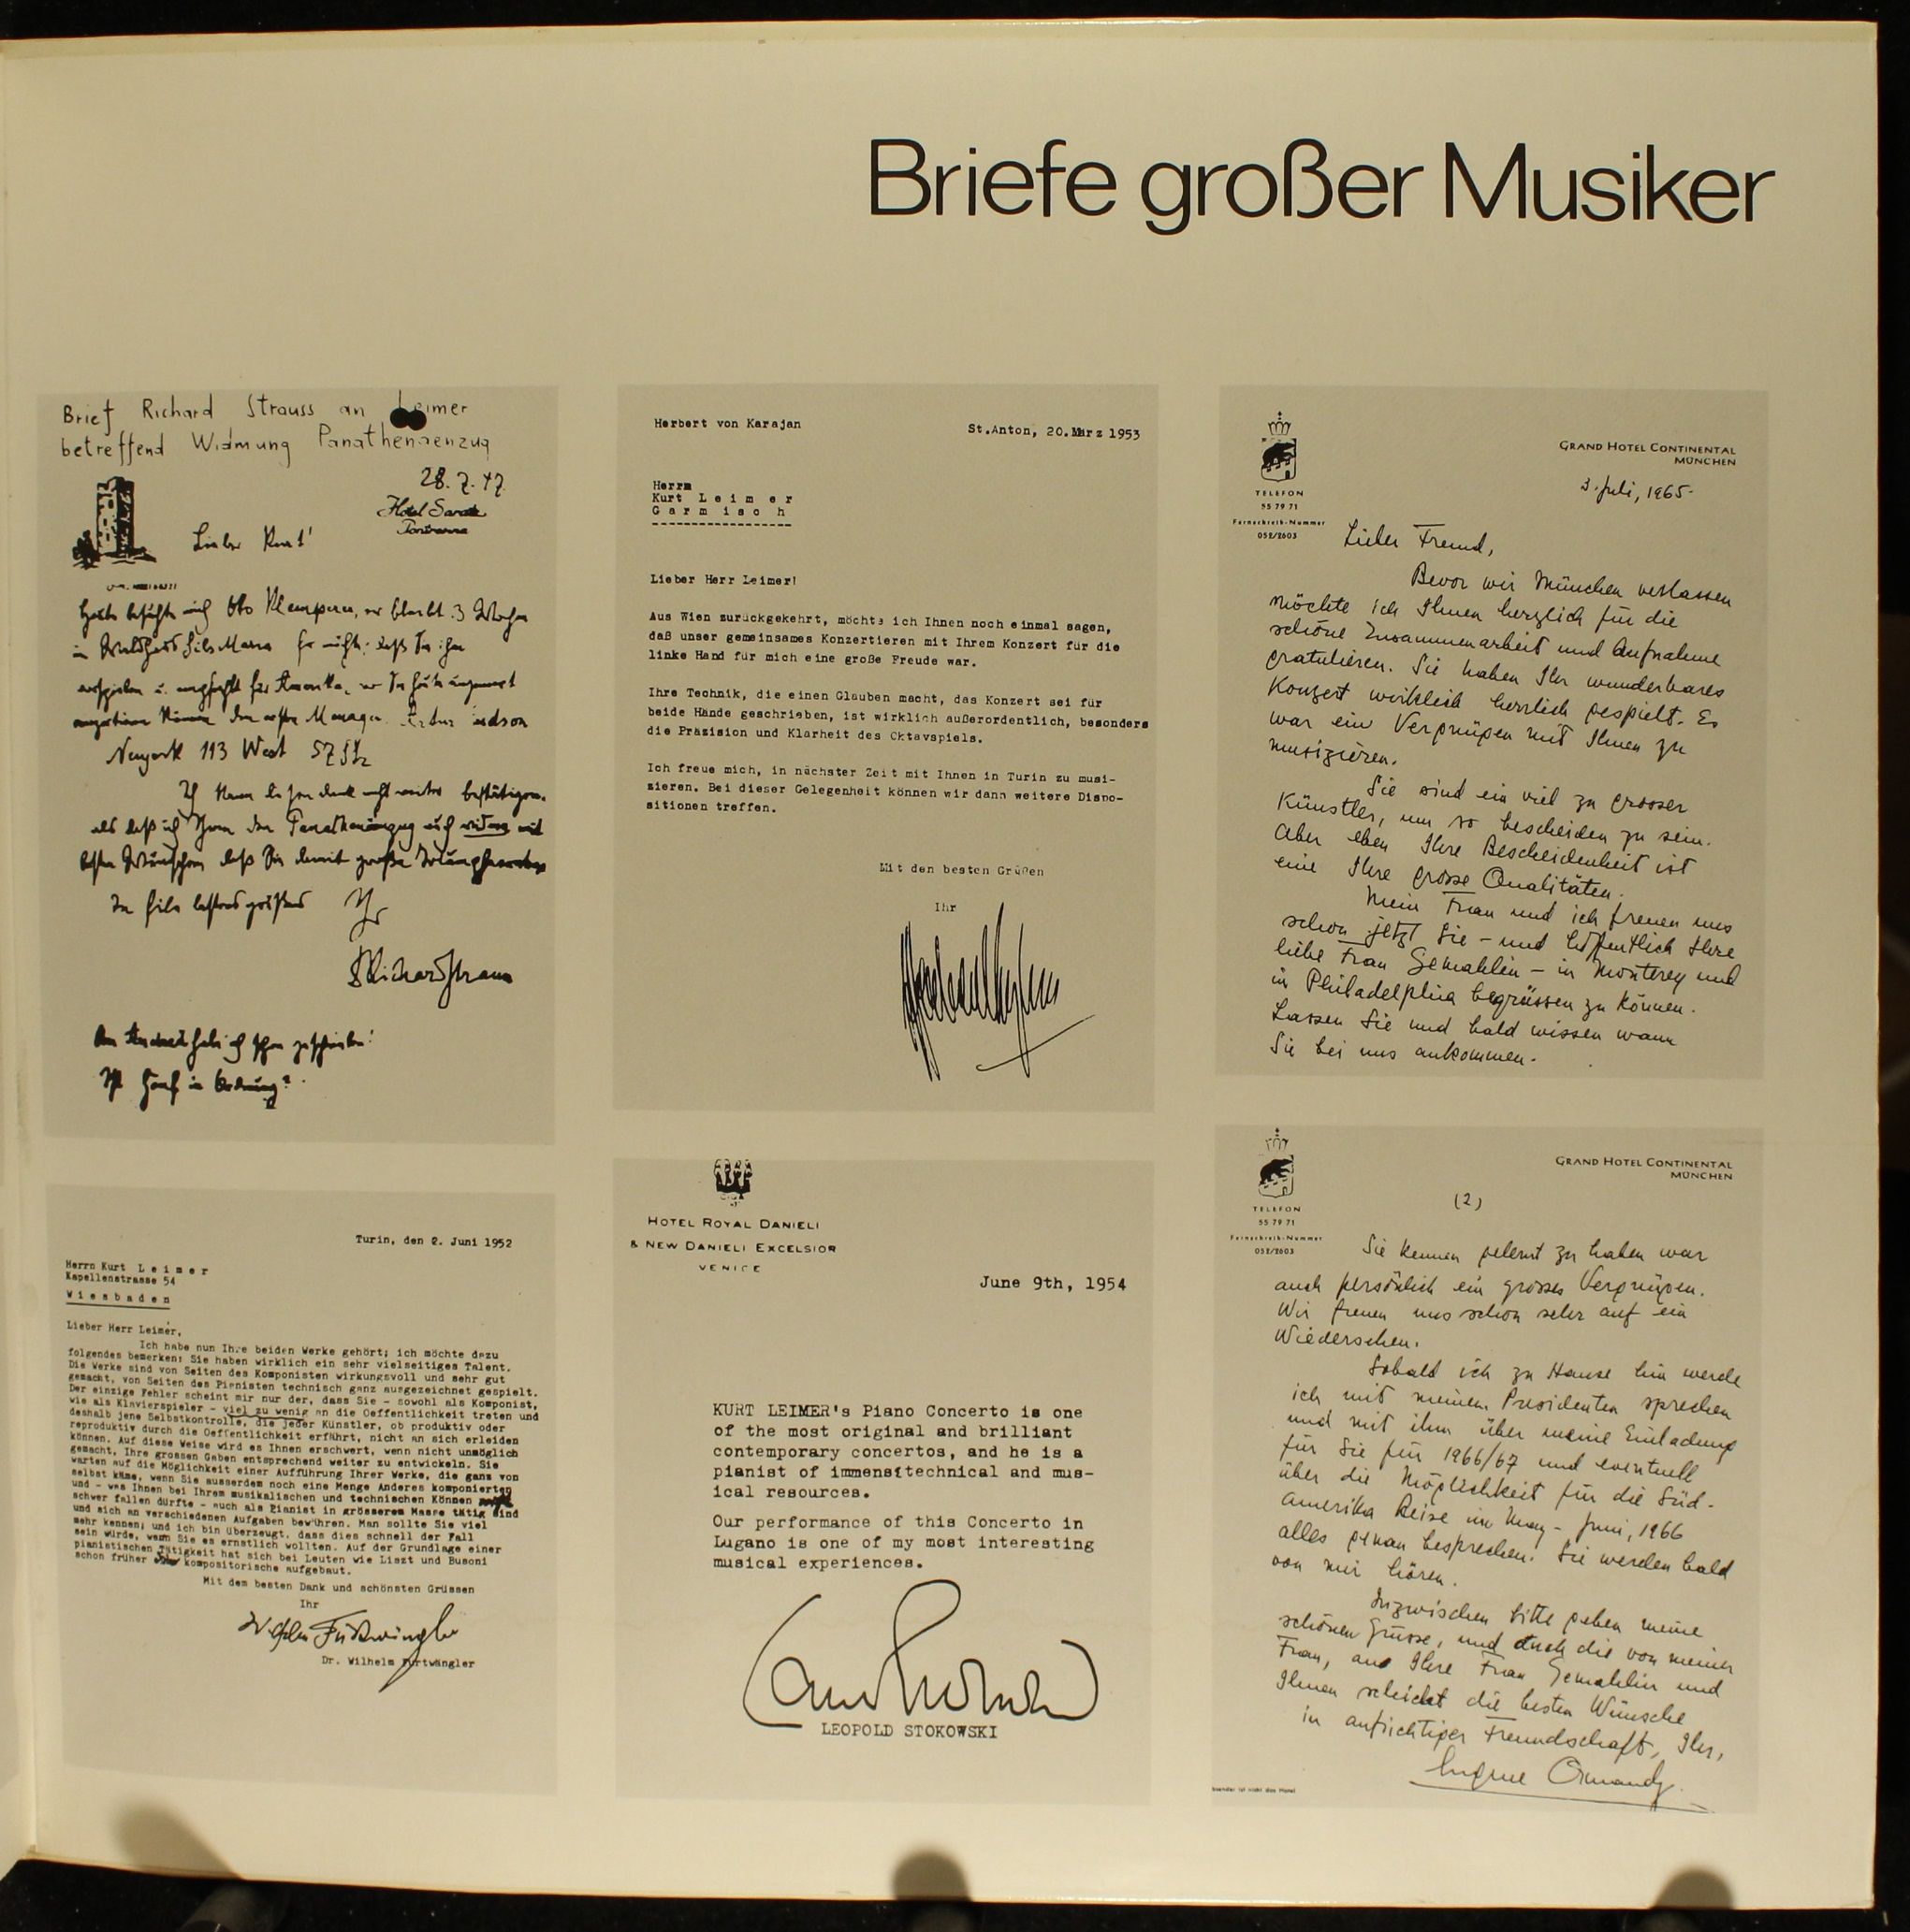 Briefe großer Musiker
Brief Richard Strauss an Leimer
betreffend Widmung Panathenaenzug
28. 7. 47
Hotel
Pontresina
Lieber Kurt!
3 Wochen
Manager
Newyork 113 West 57
Ihr
Richard Strauss
Herbert von Karajan
St.Anton, 20.März 1953
Herrn
Kurt L e i m e r
G a r m i s c h
Lieber Herr Leimer!
Aus Wien zurückgekehrt, möchte ich Ihnen noch einmal sagen,
daß unser gemeinsames Konzertieren mit Ihrem Konzert für die
linke Hand für mich eine große Freude war.
Ihre Technik, die einen Glauben macht, das Konzert sei für
beide Hände geschrieben, ist wirklich außerordentlich, besonders
die Präzision und Klarheit des Oktavspiels.
Ich freue mich, in nächster Zeit mit Ihnen in Turin zu musi-
zieren. Bei dieser Gelegenheit können wir dann weitere Dispo-
sitionen treffen.
Mit den besten Grüßen
Ihr
GRAND HOTEL CONTINENTAL
MÜNCHEN
TELEFON
55 79 71
Fernschreib-Nummer
052/2603
3. Juli, 1965.
Lieber Freund,
Bevor wir München verlassen
möchte ich Ihnen herzlich für die
schöne Zusammenarbeit und Aufnahme
gratulieren. Sie haben Ihr wunderbares
Konzert wirklich herrlich gespielt. Es
war ein Vergnügen mit Ihnen zu
musizieren.
Sie sind ein viel zu grosser
Künstler, um so bescheiden zu sein.
Aber eben Ihre Bescheidenheit ist
eine Ihre grosse Qualitäten.
Mein Frau und ich freuen uns
schon jetzt Sie – und hoffentlich Ihre
liebe Frau Gemahlin – in Monterey und
in Philadelphia begrüssen zu können.
Lassen Sie und bald wissen wann
Sie bei uns ankommen.
Turin, den 2. Juni 1952
Herrn Kurt L e i m e r
Kapellenstrasse 54
W i e s b a d e n
Lieber Herr Leimer,
Ich habe nun Ihre beiden Werke gehört; ich möchte dazu
folgendes bemerken: Sie haben wirklich ein sehr vielseitiges Talent.
Die Werke sind von Seiten des Komponisten wirkungsvoll und sehr gut
gemacht, von Seiten des Pianisten technisch ganz ausgezeichnet gespielt.
Der einzige Fehler scheint mir nur der, dass Sie - sowohl als Komponist,
wie als Klavierspieler - viel zu wenig an die Oeffentlichkeit treten und
deshalb jene Selbstkontrolle, die jeder Künstler, ob produktiv oder
reproduktiv durch die Oeffentlichkeit erfährt, nicht an sich erleiden
können. Auf diese Weise wird es Ihnen erschwert, wenn nicht unmöglich
gemacht, Ihre grossen Gaben entsprechend weiter zu entwickeln. Sie
warten auf die Möglichkeit einer Aufführung Ihrer Werke, die ganz von
selbst käme, wenn Sie ausserdem noch eine Menge Anderes komponierten
und - was Ihnen bei Ihrem musikalischen und technischen Können nicht
schwer fallen dürfte - auch als Pianist in grösserem Masse tätig sind
und sich an verschiedenen Aufgaben bewühren. Man sollte Sie viel
mehr kennen; und ich bin überzeugt, dass dies schnell der Fall
sein würde, wann Sie es ernstlich wollten. Auf der Grundlage einer
pianistischen Tätigkeit hat sich bei Leuten wie Liszt und Busoni
schon früher kompositorische aufgebaut.
Mit dem besten Dank und schönsten Grüssen
Ihr
Wilhelm Furtwängler
Dr. Wilhelm Furtwängler
HOTEL ROYAL DANIELI
& NEW DANIELI EXCELSIOR
VENICE
June 9th, 1954
KURT LEIMER's Piano Concerto is one
of the most original and brilliant
contemporary concertos, and he is a
pianist of immense technical and mus-
ical resources.
Our performance of this Concerto in
Lugano is one of my most interesting
musical experiences.
LEOPOLD STOKOWSKI
GRAND HOTEL CONTINENTAL
MÜNCHEN
TELEFON
55 79 71
Fernschreib-Nummer
052/2603
(2)
Sie kennen gelernt zu haben war
auch persönlich ein grosses Vergnügen.
Wir freuen uns schon sehr auf ein
Wiedersehen.
Sobald ich zu Hause bin werde
ich mit meinem Presidenten sprechen
und mit ihm über meine Einladung
für Sie für 1966/67 und eventuell
über die Möglichkeit für die Süd-
amerika Reise im May – Juni, 1966
alles genau besprechen. Sie werden bald
von mir hören.
Inzwischen bitte geben meine
schönen Grüsse, und auch die von meiner
Frau, an Ihre Frau Gemahlin und
Ihnen schickt die besten Wünsche
in aufrichtiger Freundschaft, Ihr,
Eugene Ormandy
Absender ist nicht das Hotel